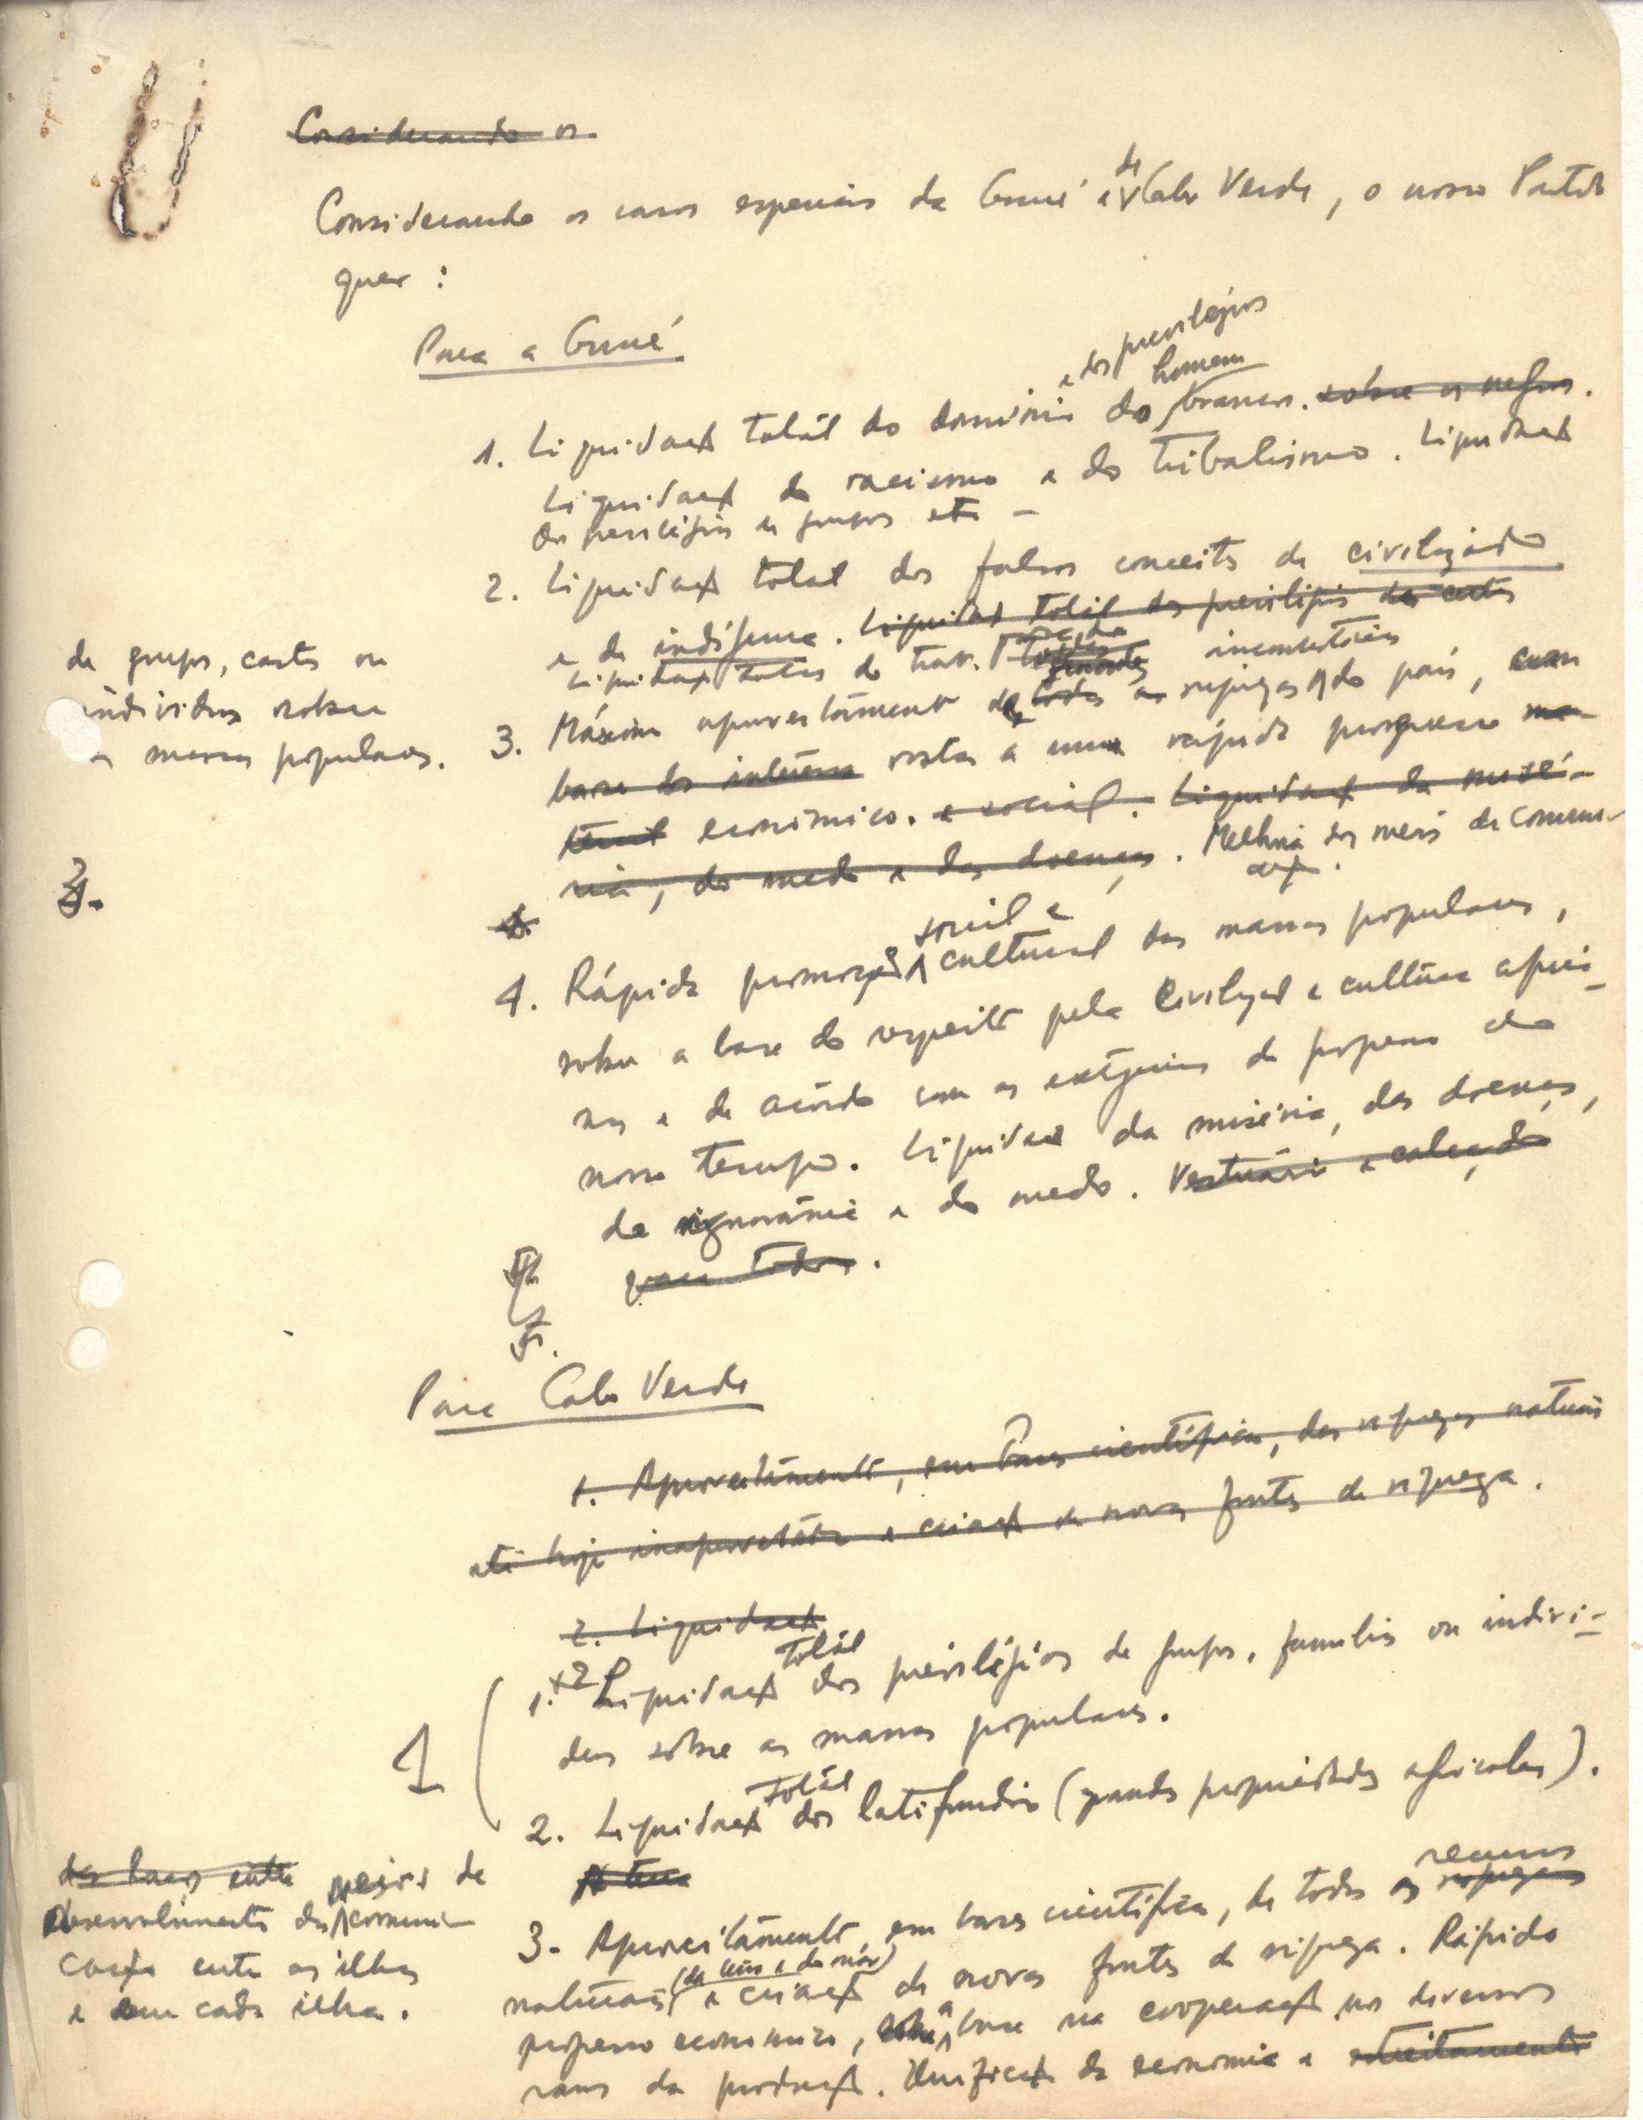 Considerando os
Considerando os casos especiais da Guiné e de Cabo Verde, o nosso Partido
quer :
Para a Guiné
e dos privilégios
homem
1. Liquidação totál do domínio do branco. sobre os negros.
Liquidação do racismo e do tribalismo. Liquidação
dos privilégios de grupos etc -
2. Liquidação total dos falsos conceitos de civilizado
e de indígena. Liquidação totál dos privilégios de castas
Liquidação do trab.
de grupos, castas ou
indivíduos sobre
as massas populares.
3. Máximo aproveitamento de todas as riquezas do país, com
base dos interesses vistas a um rápido progresso ma-
terial económico. e social. Liquidação da misé-
ria, do medo e das doenças. Melhoria dos meios de comuni-
cação.
2.
4. Rápida promoção social e cultural das massas populares,
sobre a base do respeito pela civilização e cultura africa-
nas e de acôrdo com as exigências do progresso do
nosso tempo. Liquidação da miséria, das doenças,
da ignorância e do medo. Vestuário e calçado
para todos.
5.
Para Cabo Verde
1. Aproveitamento, em bases científicas, das riquezas naturais
até hoje inaproveitadas e criação de novas fontes de riqueza.
2. Liquidação
1
1. +2 Liquidação totál dos privilégios de grupos, famílias ou indiví-
duos sôbre as massas populares.
2. Liquidação totál dos latifundios (grandes propriedades agrícolas).
dos laços entre meios de
Desenvolvimento dos comuni-
cação entre as ilhas
e em cada ilha.
3. Aproveitamento, em bases científicas, de todos os riquezas recursos
naturais (da terra e do mar) e criação de novas fontes de riqueza. Rápido
progresso economico, sobre a base na cooperação nos diversos
ramos da produção. Unificação da economia e estreitamento